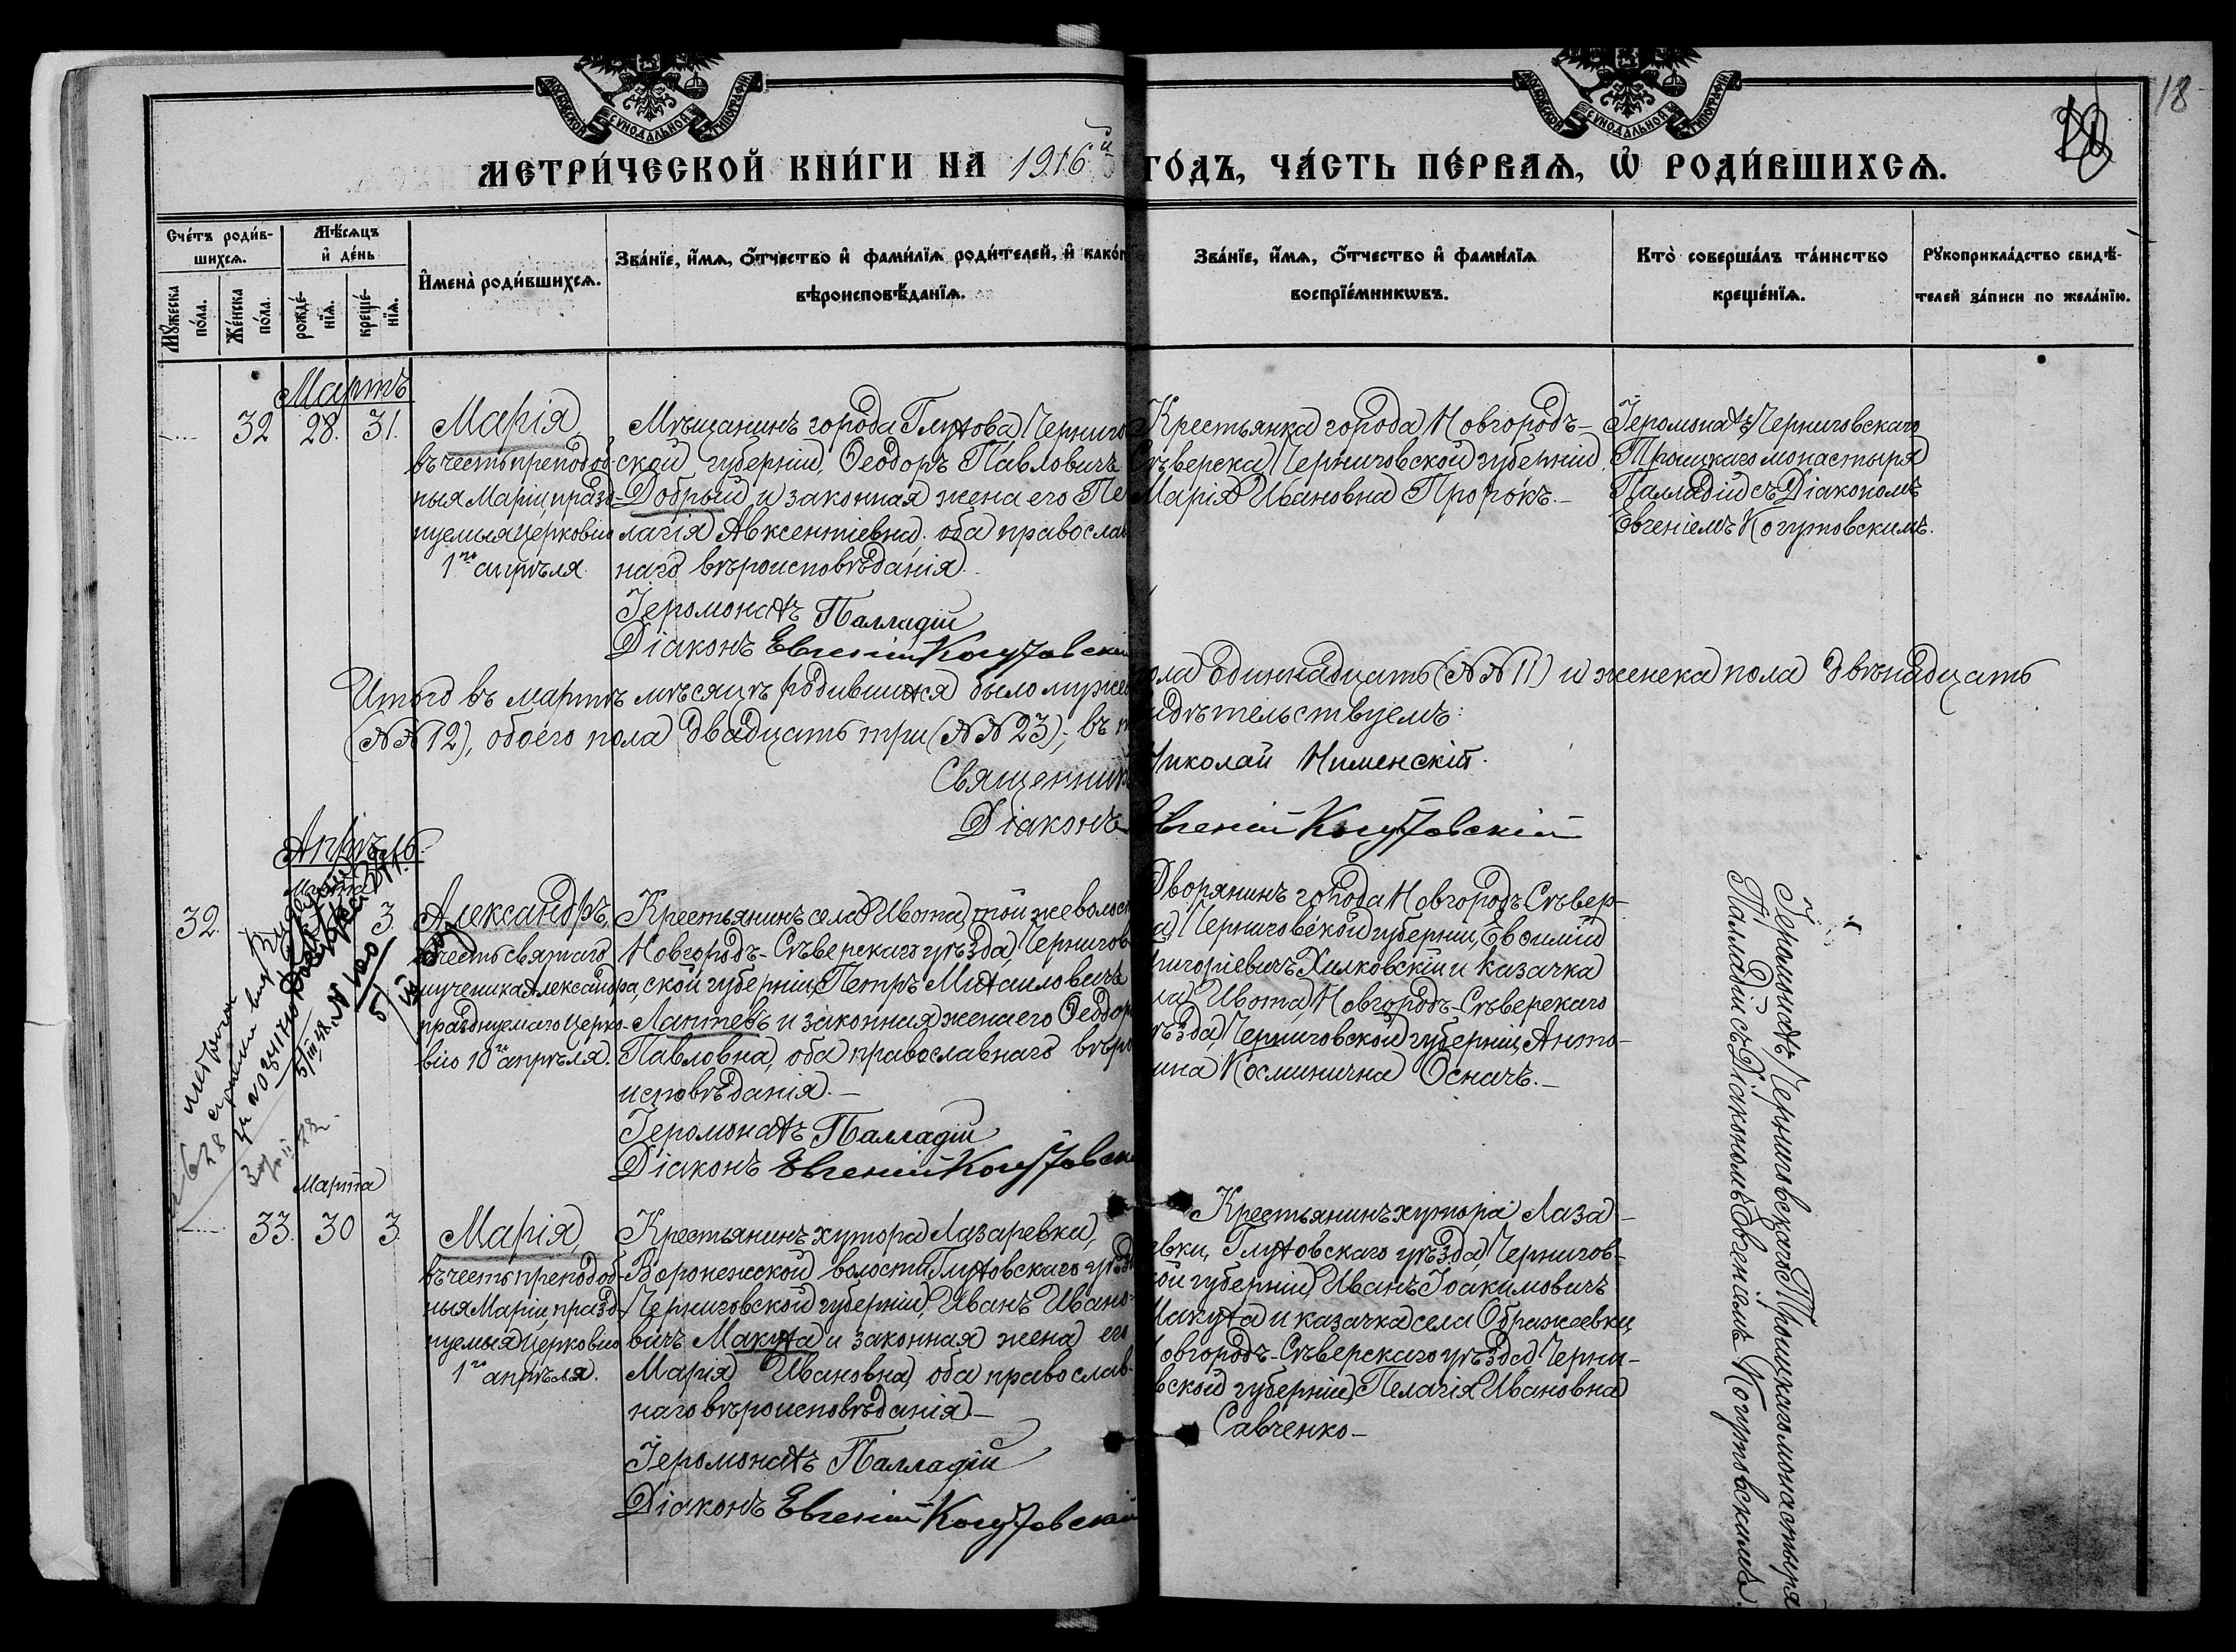 МОСКОВСКОЙ СУНОДАЛЬНОЙ ТИПОГРАФІИ
МОСКОВСКОЙ СУНОДАЛЬНОЙ ТИПОГРАФІИ
18
МЕТРИ́ЧЕСКОЙ КНИ́ГИ НА 1916й ГО́ДЪ, ЧА́СТЬ ПЕ́РВАѦ, Ѡ҆ РОДИ́ВШИХСѦ.
Сче́тъ роди́в-
шихсѧ.
Мꙋ́жеска
по́ла.
Же́нска
по́ла.
Мѣ́сѧцъ
и҆ де́нь
рожде́-
нїѧ.
креще́-
нїѧ.
И҆мена̀ роди́вшихсѧ.
Зва́нїе, и҆́мѧ, ѻ҆́тчество и҆ фами́лїѧ роди́телей, и҆ како́г
вѣроисповѣ́данїѧ.
Зва́нїе, и҆́мѧ, ѻ҆́тчество и҆ фами́лїѧ
воспрїе́мникѡвъ.
Кто̀ соверша́лъ та́инство
креще́нїѧ.
Рꙋкоприкла́дство свидѣ́-
телей за́писи по жела́нїю.
Мартъ
32 28. 31.
Марія
въ честь преподоб-
ныя Маріи, празд-
нуемыя церковію
1го апрѣля
Мѣщанинъ города Глухова, Черниго
ской губерніи, Ѳеодоръ Павловичъ
Добрый и законная жена его Пе
лагія Авксентіевна, оба православ
наго вѣроисповѣданія.
Іеромонахъ Палладій
Діаконъ Евгеній Когутовскій
Крестьянка города Новгородъ-
Сѣверска, Черниговской губерніи,
Марія Ивановна Пророкъ.-
Іеромонахъ Черниговскаго
Троицкаго монастыря
Палладій съ Діакономъ
Евгеніемъ Когутовскимъ.
Итого въ мартѣ мѣсяцѣ родившихся было мужес
пола одиннадцать (№№ 11) и женска пола двѣнадцать
(№№ 12), обоего пола двадцать три (№№ 23); въ
идѣтельствуемъ:
Священникъ Николай Нименскій.
Діаконъ Евгеній Когутовскій
Апрѣль.
Марта
32. 3.
Александръ,
въ честь святаго
мученика Александра,
празднуемаго Церко-
вію 10го апрѣля.
Крестьянинъ села Ивота, той же волост
Новгородъ-Сѣверскаго уѣзда, Чернигов
ской губерніи, Петръ Михаиловичъ
Лаптевъ и законная жена его Ѳеодор
Павловна, оба православнаго вѣро
исповѣданія.-
Іеромонахъ Палладій
Діаконъ Евгеній Когутовскі
Дворянинъ города Новгородъ-Сѣвер-
а, Черниговской губерніи, Евѳимій
Григоріевичъ Хилковскій и казачка
ла Ивота, Новгородъ-Сѣверскаго
уѣзда, Черниговской губерніи, Анто-
нина Косминична Осначъ.-
Іеромонахъ Черниговскаго Троицкаго монастыря
Палладій съ Діакономъ Евгеніемъ Когутовскимъ.
№ 100
628
Марта
33. 30 3.
Марія,
въ честь преподоб-
ныя Маріи, празд-
нуемыя Церковію
1го апрѣля.
Крестьянинъ хутора Лазаревки,
Воронежской волости Глуховскаго уѣзд
Черниговской губерніи, Иванъ Ивано-
вичъ Макуха и законная жена его
Марія Ивановна, оба православ-
наго вѣроисповѣданія.-
Іеромонахъ Палладій
Діаконъ Евгеній Когутовскій
Крестьянинъ хутора Лаза-
ревки, Глуховскаго уѣзда, Чернигов-
ской губерніи, Иванъ Іоакимовичъ
Макуха и казачка села Ображеевки,
Новгородъ-Сѣверскаго уѣзда Черни-
вской губерніи, Пелагія Ивановна
Савченко-